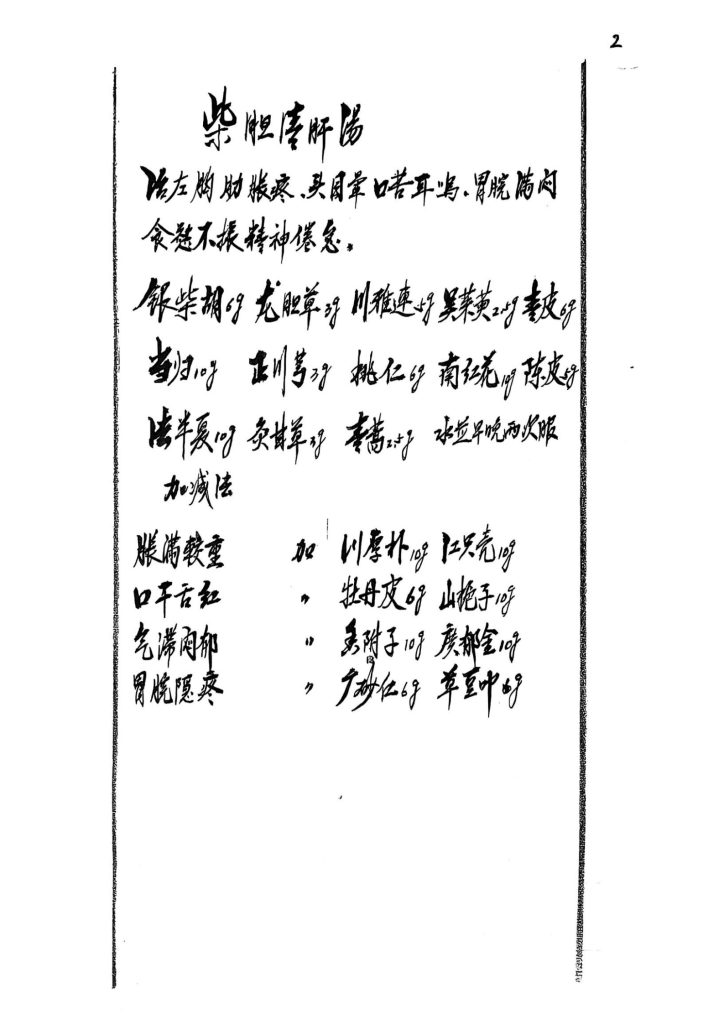 2
柴胆清肝汤
治左胸肋胀疼、头目晕口苦耳鸣、胃脘满闷
食慾不振精神倦怠。
银柴胡6g 龙胆草3g 川雅連5g 吴茱萸2.5g 青皮6g
当归10g 正川芎3g 桃仁6g 南红花10g 陈皮5g
法半夏10g 灸甘草3g 青蒿2.5g 水煎早晚两次服
加减法
胀满较重 加 川厚朴10g 江只壳10g
口干舌红 〃 牡丹皮6g 山栀子10g
气滞闷郁 〃 香附子10g 广郁金10g
胃脘隐疼 〃 广砂仁6g 草豆叩6g